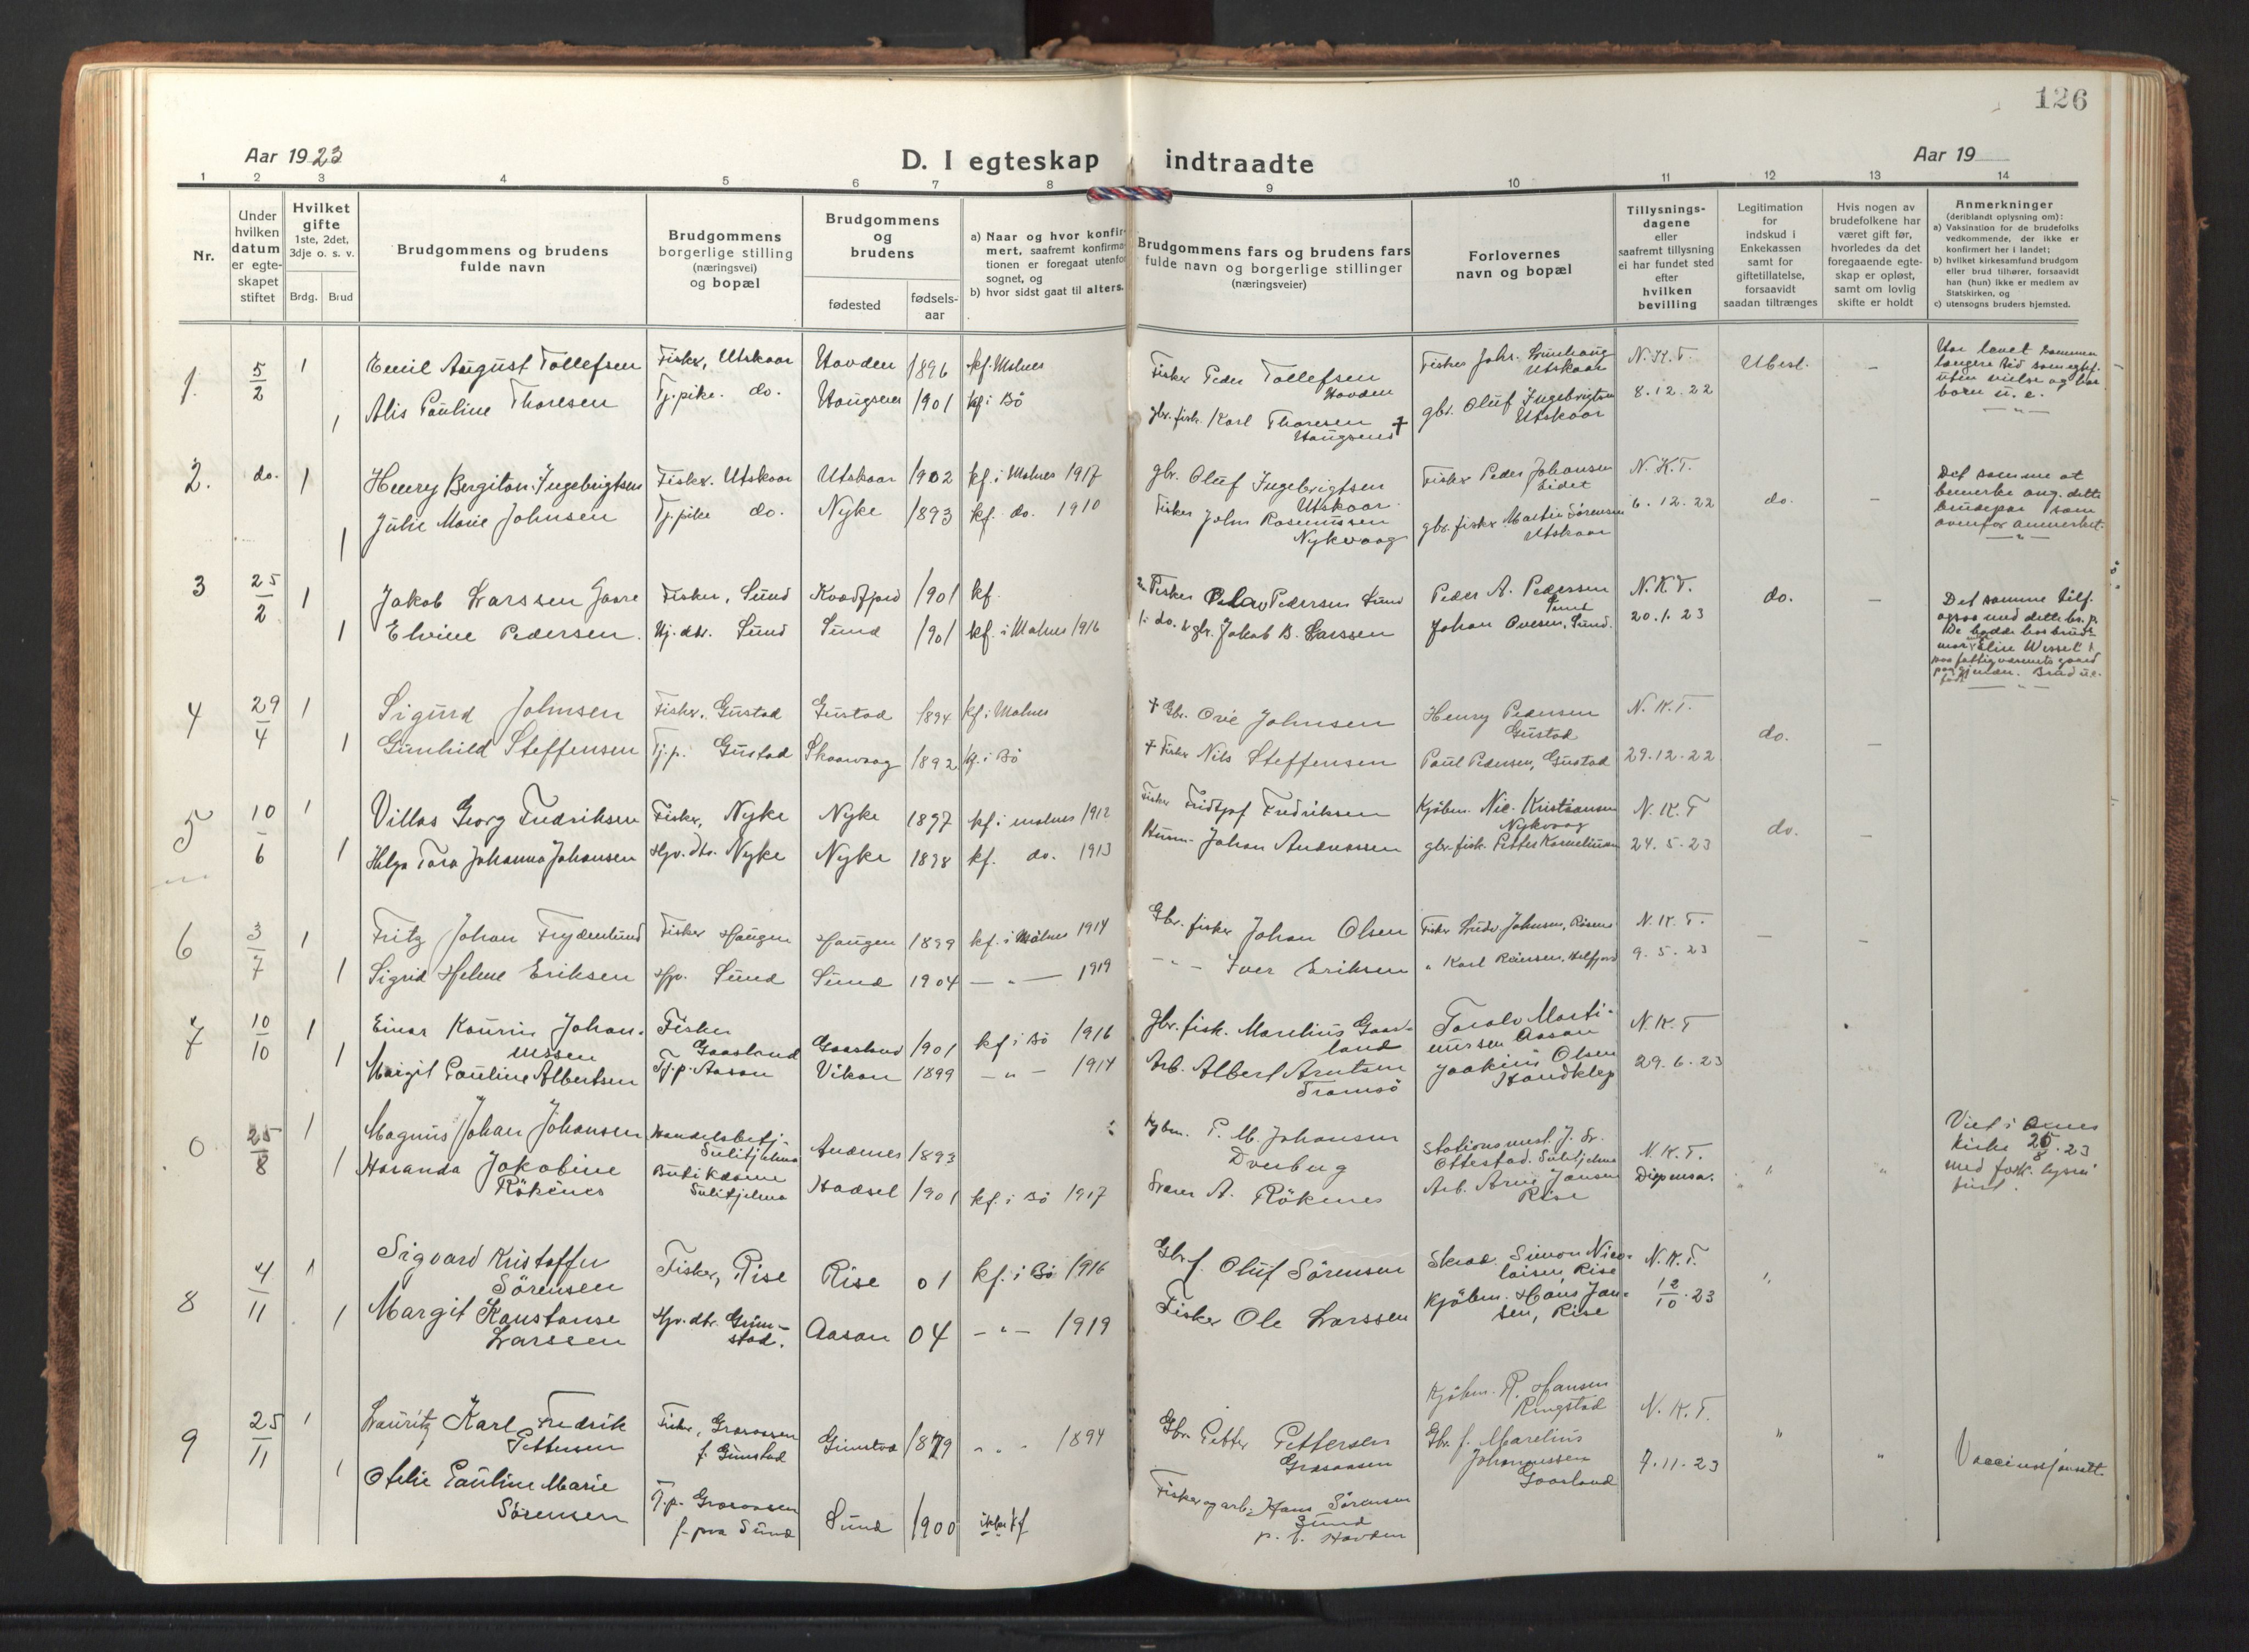 126
Aar 1923
D. I egteskap indtraadte
Aar 19
1 2 3 4 5 6 7 8 9 10 11 12 13 14
Nr.
Under
hvilken
datum
er egte-
skapet
stiftet
Hvilket
gifte
1ste, 2det,
3dje o. s. v.
Brdg. Brud
Brudgommens og brudens
fulde navn
Brudgommens
borgerlige stilling
(næringsvei)
og bopæl
Brudgommens
og
brudens
fødested
fødsels-
aar
a) Naar og hvor konfir-
mert, saafremt konfirma-
tionen er foregaat utenfor
sognet, og
b) hvor sidst gaat til alters.
Brudgommens fars og brudens fars
fulde navn og borgerlige stillinger
(næringsveier)
Forlovernes
navn og bopæl
Tillysnings-
dagene
eller
saafremt tillysning
ei har fundet sted
efter
hvilken
bevilling
Legitimation
for
indskud i
Enkekassen
samt for
giftetillatelse,
forsaavidt
saadan tiltrænges
Hvis nogen av
brudefolkene har
været gift før,
hvorledes da det
foregaaende egte-
skap er opløst,
samt om lovlig
skifte er holdt
Anmerkninger
(deriblandt oplysning om):
a) Vaksination for de brudefolks
vedkommende, der ikke er
konfirmert her i landet;
b) hvilket kirkesamfund brudgom
eller brud tilhører, forsaavidt
han (hun) ikke er medlem av
Statskirken, og
c) utensogns bruders hjemsted.
1. 5/2 1 Emil August Tollefsen Fisker, Utskaar Hovden 1896 kf. Malnes Fisker Peder Tollefsen Hovden Fisker Johs. Utskaar N.K.T. Ubest. —
1 Alis Pauline Thoresen Tj.pike. do. Haugsnes 1901 kf i Bö gbr. fisk. Karl Thoresen † Haugsnes gbr. Oluf Ingebrigtsen Utskaar 8.12.22
Har levet sammen
længere tid som egtef.
uten vielse og har
barn u. e.
2. do. 1 Henry Bergiton Ingebrigtsen Fisker. Utskaar Utskaar 1902 kf. i Malnes 1917 gbr. Oluf Ingebrigtsen Utskaar Fisker Peder Johansen Eidet N.K.T. do. —
1 Julie Marie Johnsen Tj.pike do. Nyke 1893 kf. do. 1910 Fisker John Rasmussen Nykvaag gbr. fisker Martin Sörensen Utskaar 6.12.22
Det samme at
bemerke ang. dette
brudepar som
ovenfor anmerket.
3 25/2 1 Jakob Larssen Gaare Fisker, Sund Kvædfjord 1901 kf. 2. Fisker Pedersen Sund Peder A. Pedersen Sund N.K.T. do. —
1 Elvine Pedersen. Hj.dtr. Sund Sund 1901 kf. i Malnes 1916 1. do. & gbr. Jakob B. Larssen Johan Ovesen, Sund. 20.1.23
Det samme tilf.
ogsaa med dette br.p.
De bodde hos
4 29/4 1 Sigurd Johnsen Fisker, Gustad Gustad 1894 kf. i Malnes † Gbr. Johnsen Henry Pedersen Gustad N.K.T. do. —
1 Gunhild Steffensen Tj.p. Gustad Skaarvaag 1892 kf. i Bö † Fisker Nils Steffensen Paul Pedersen, Gustad 29.12.22
5 10/6 1 Villas Georg Fredriksen Fisker, Nyke Nyke 1897 kf. i malnes 1912 Fisker Fridtjof Fredriksen Kjöbm. Nic. Kristiansen Nykvaag N.K.T do. —
1 Helga Tora Johanna Johansen Hjv. dtr. Nyke Nyke 1898 kf. do. 1913 Johan Andreassen gbr. fisk. Petter Korneliusen 24.5.23
6 3/7 1 Fritz Johan Frydenlund Fisker Haugen Haugen 1899 kf. i Malnes 1914 Gbr. fisker Johan Olsen Fisker Johnsen, N.K.T. — —
1 Sigrid Helene Eriksen Hjv. Sund Sund 1904 — " — 1919 — " — Iver Eriksen " Karl 9.5.23
7 10/10 1 Einar Kaurin Johan-
nessen Fisker Gaasland Gaasland 1901 kf i Bö 1916 gbr. fisk. Marelius Gaas-
land Toralv Marti-
nussen Aasan N.K.T
1 Margit Pauline Albertsen Tj.p. Aasan Vikan 1899 — " — 1914 Arb. Albert Arntsen Tromsö Joakim Olsen Handklep 29.6.23
0 25/8 1 Magnus Johan Johansen Handelsbetj. Sulitjelma Andenes 1893 Kjbm. P. M. Johansen Dverberg Stationsmest. J. Fr. Ottestad. Sulitjelma N.K.T.
1 Haranda Jakobine Rökenes Butikdame Sulitjelma Hadsel 1901 kf. i Bö 1917 A. Rökenes Arb. Arne Jansen Rise Dispensa. " "
Viet i
kirke 25/8.23
med fork. lysn.
4/11 1 Sigvard Kristoffer
Sörensen Fisker, Rise Rise 01 kf. i Bö 1916 Gbr. f. Oluf Sörensen Skræd. Simon Nico-
laisen, Rise N.K.T. "
8 1 Margit Konstanse
Larssen Hjv. dtr. Grim-
stad. Aasan 04 — " — 1919 Fisker Ole Larssen Kjöbm. Hans Jan-
sen, Rise 12/10.23
9 25/11 1 Lauritz Karl Fredrik
Pettersen Fisker, Graraasen f. Gimstad Gimstad 1879 " " 1894 Gbr. Petter Pettersen Kjöbm. R. Hansen Ringstad N.K.T. " "
1 Otelie Pauline Marie
Sörensen Tj.p. Graraasen f. paa Sund Sund 1900 ikke kf Fisker og arb. Hans Sörensen Sund p. t. Hovden Gbr. f. Marelius Johannessen Gaasland 7.11.23